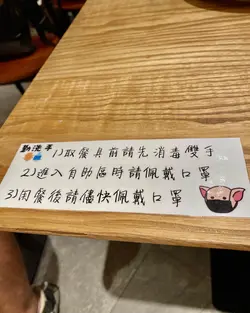 勤洗手
1)取餐具前請先消毒雙手
2)進入自助區時請佩戴口罩
3)用餐後請儘快佩戴口罩